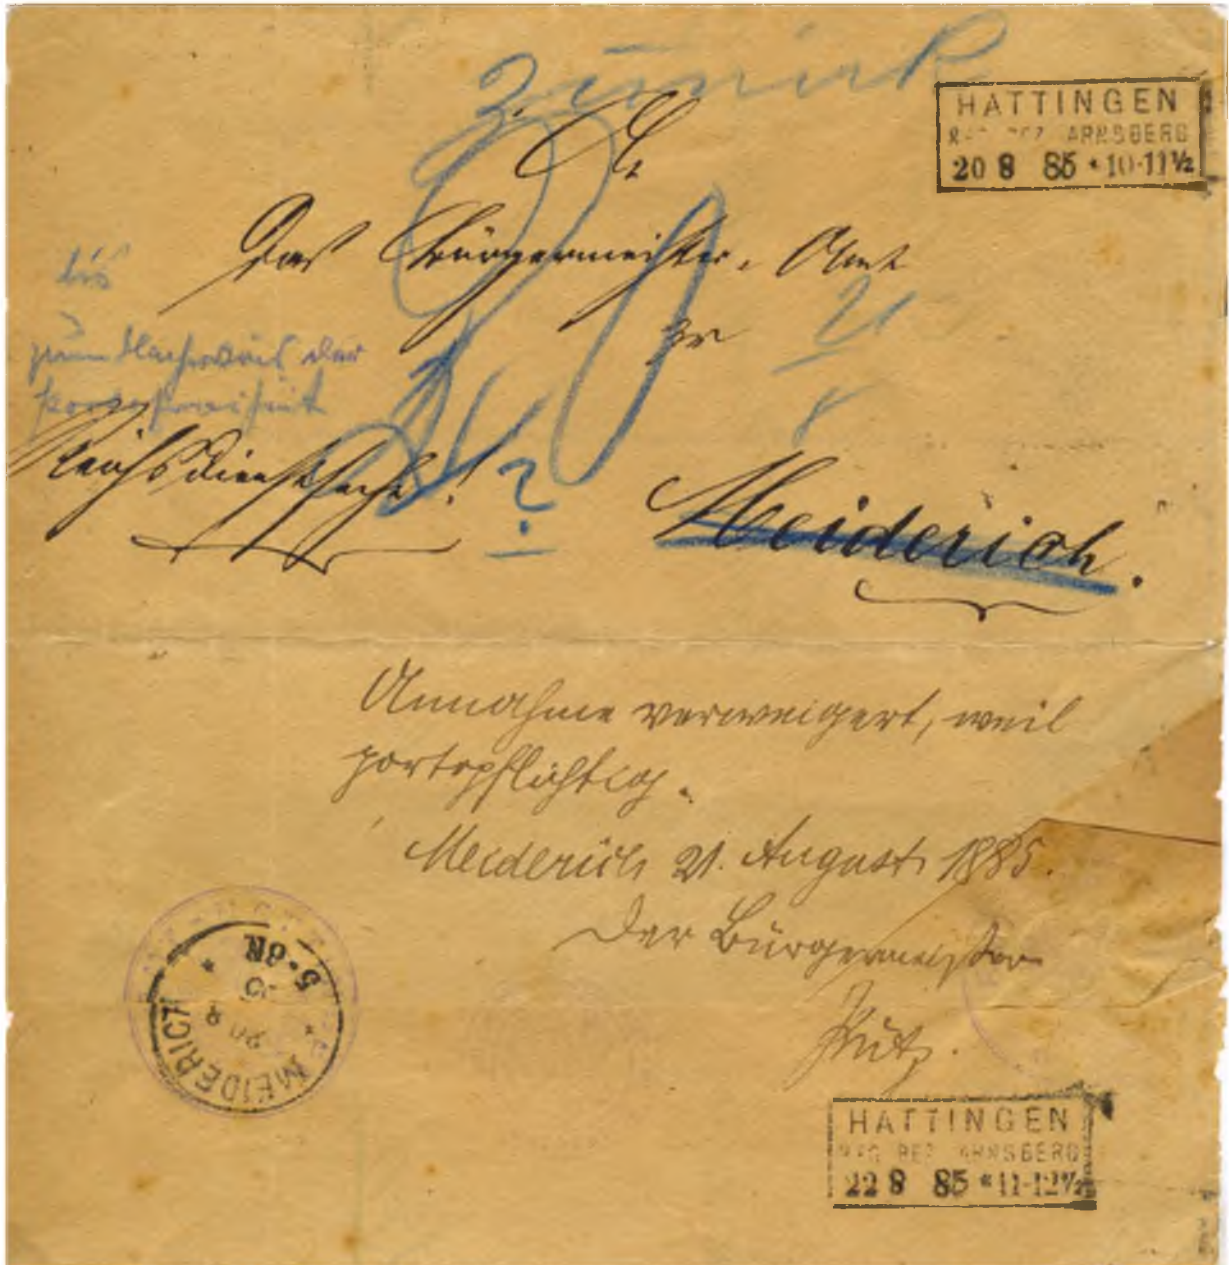 zurück
HATTINGEN
REG. BEZ. ARNSBERG
20 8 85 * 10-11½
An
Das Bürgermeister-Amt
zu
21
8
bis
zum Nachweis der
Portofreiheit
Reichsdienstsache! ?
Meiderich.
Annahme verweigert, weil
portopflichtig.
Meiderich 21. August 1885.
Der Bürgermeister
MEIDERICH
20 8
85
5-6N
HATTINGEN
REG. BEZ. ARNSBERG
22 8 85 * 11-12½